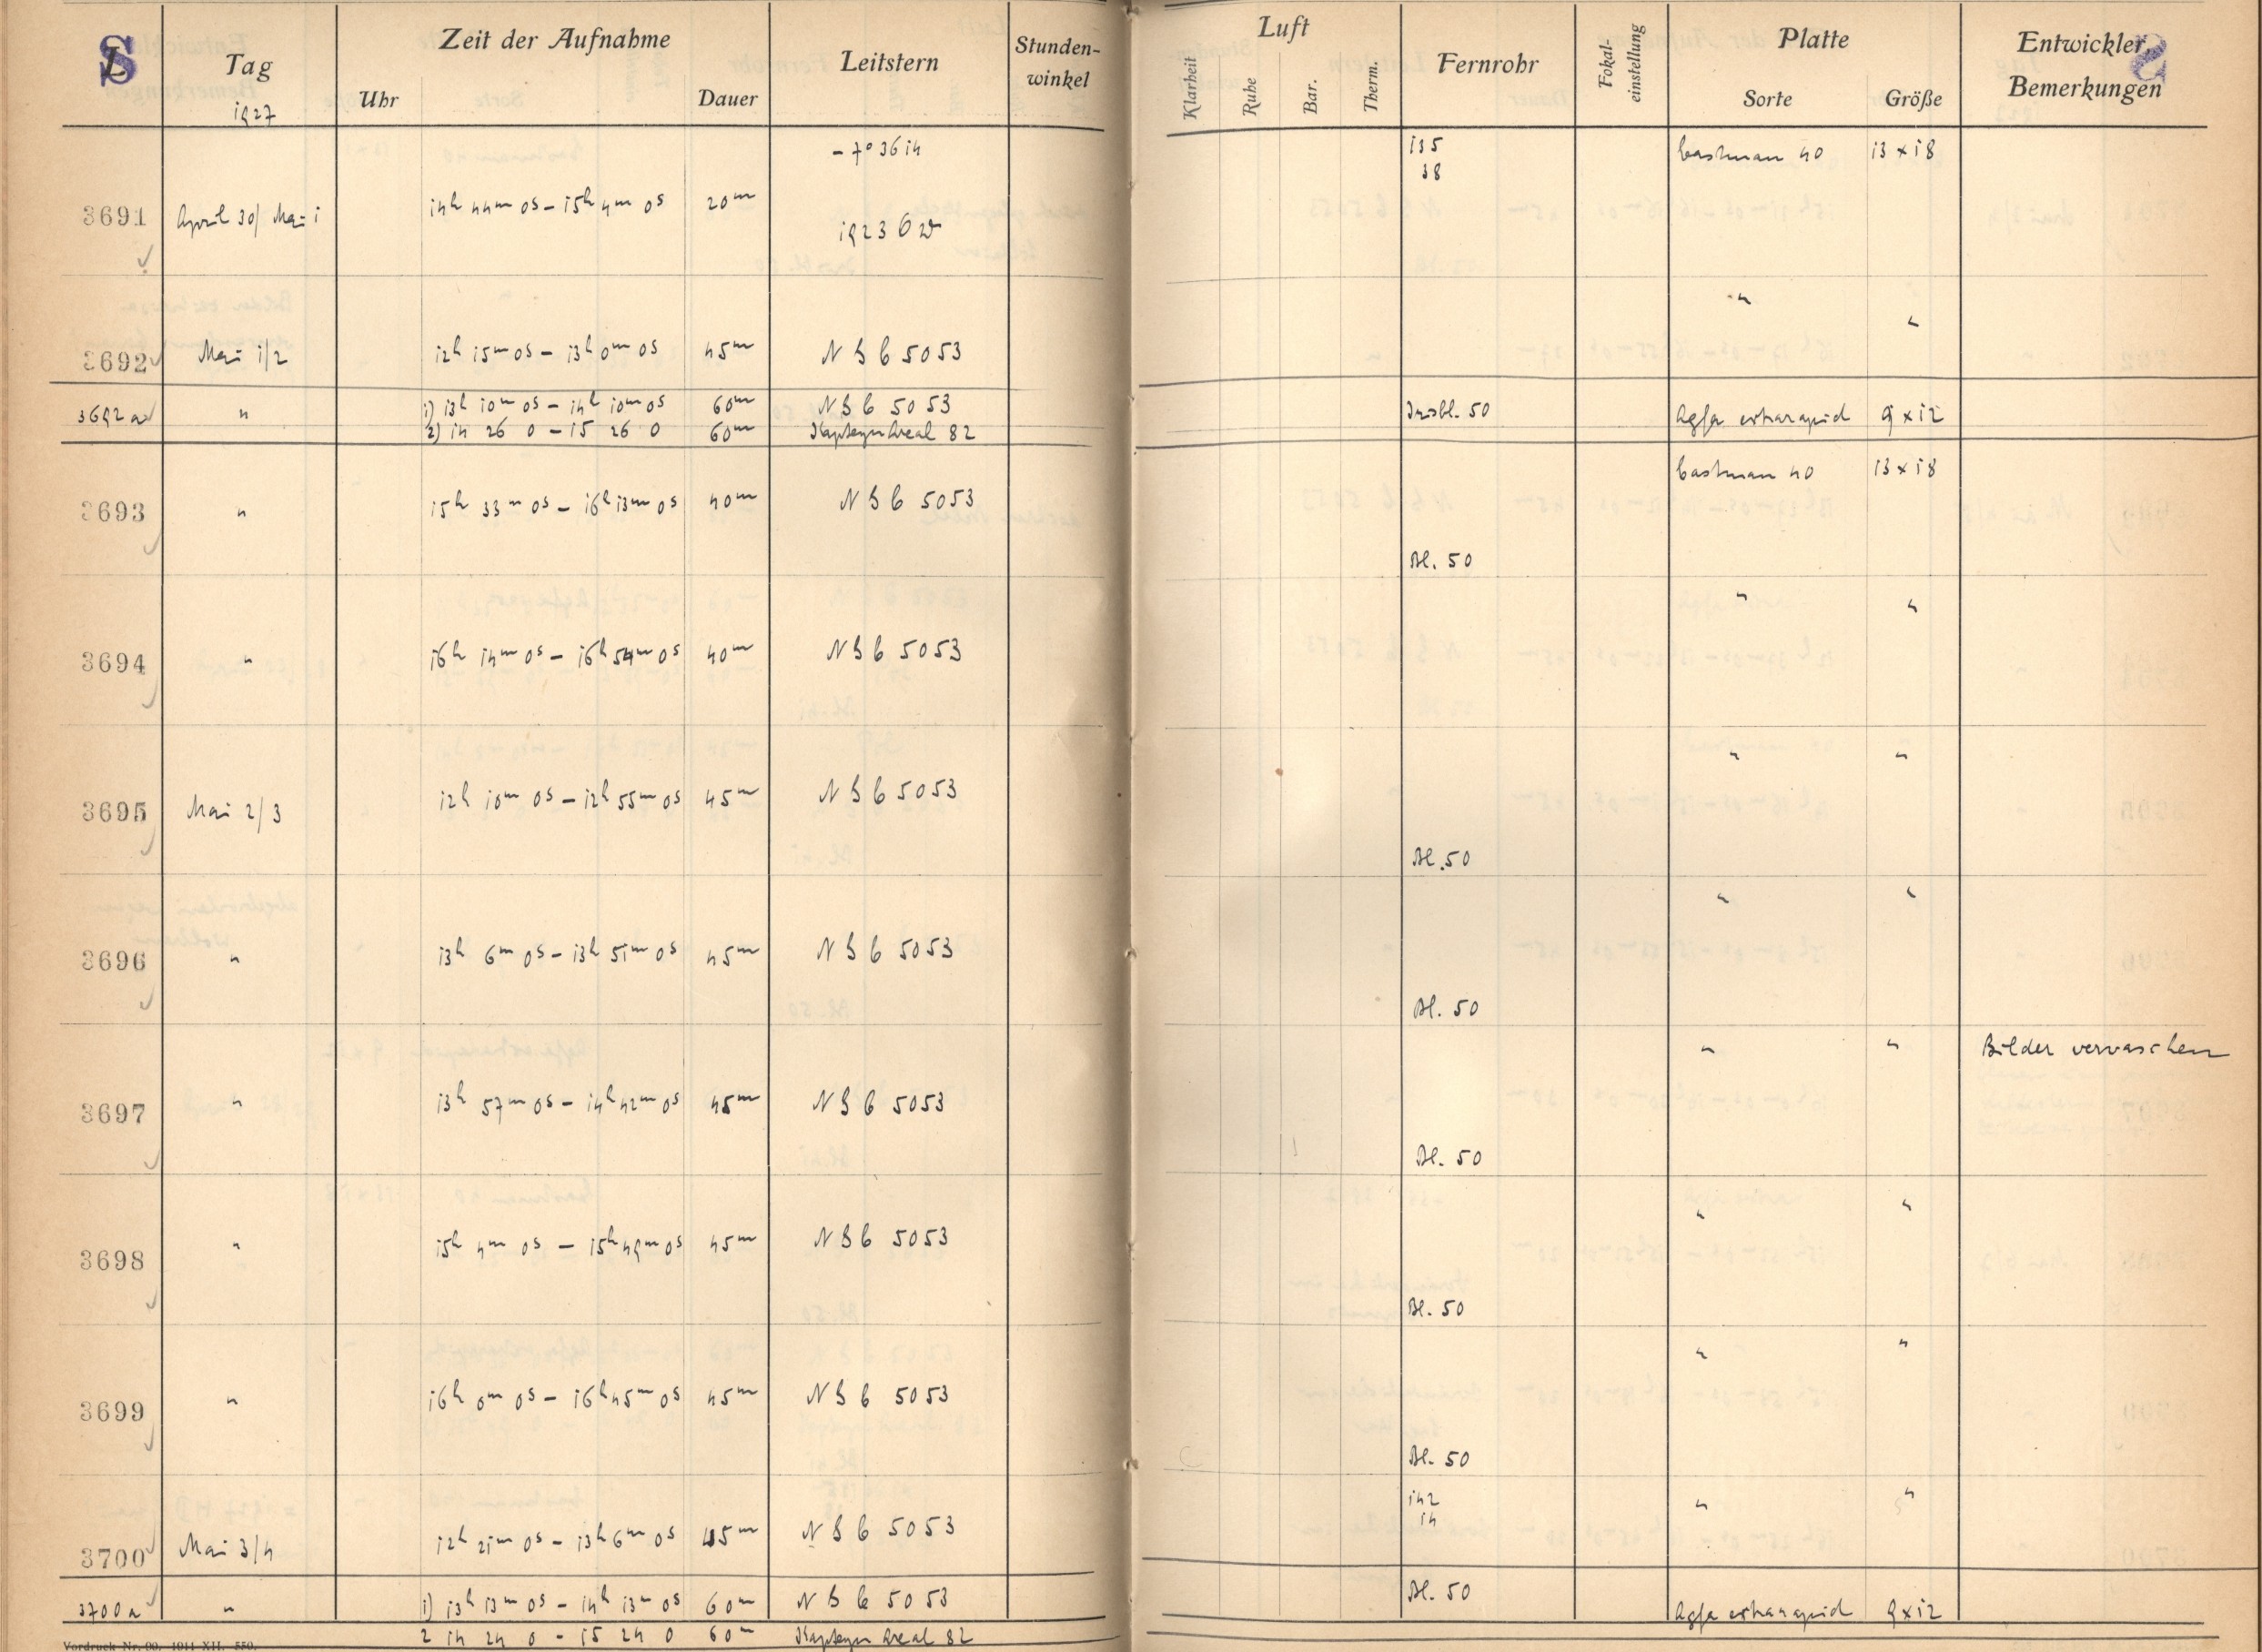 S L Tag Zeit der Aufnahme Leitstern Stunden-winkel Luft Fernrohr Fokal-einstellung Platte Entwickler Bemerkungen S
1927 Uhr Dauer Klarheit Ruhe Bar. Therm. Sorte Größe
-7° 3614 135 Eastman 40 13 x 18
38
3691 April 30/ Mai 1 14h 44m 0s - 15h 4m 0s 20m
1923
" "
3692 Mai 1/2 12h 15m 0s - 13h 0m 0s 45m N B G 5053
3692a " 1) 13h 10m 0s - 14h 10m 0s 60m N B G 5053 Irisbl. 50 Agfa extrarapid 9 x 12
2) 14 26 0 - 15 26 0 60m Kapteyn Areal 82
Eastman 40 13 x 18
3693 " 15h 33m 0s - 16h 13m 0s 40m N B G 5053
Bl. 50
" "
3694 " 16h 14m 0s - 16h 54m 0s 40m N B G 5053
" "
3695 Mai 2/3 12h 10m 0s - 12h 55m 0s 45m N B G 5053
Bl. 50
" "
3696 " 13h 6m 0s - 13h 51m 0s 45m N B G 5053
Bl. 50
" " Bilder verwaschen
3697 " 13h 57m 0s - 14h 42m 0s 45m N B G 5053
Bl. 50
" "
3698 " 15h 4m 0s - 15h 49m 0s 45m N B G 5053
Bl. 50
" "
3699 " 16h 0m 0s - 16h 45m 0s 45m N B G 5053
Bl. 50
142 " "
14
3700 Mai 3/4 12h 21m 0s - 13h 6m 0s 45m N B G 5053
3700a " 1) 13h 13m 0s - 14h 13m 0s 60m N B G 5053 Bl. 50 Agfa extrarapid 9 x 12
2 14 24 0 - 15 24 0 60m Kapteyn Areal 82
Vordruck Nr. 99. 1911 XII. 550.